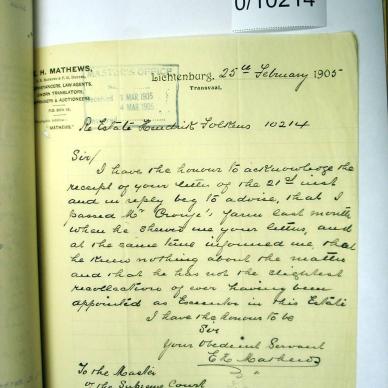 0/10214
E. H. MATHEWS,
CONVEYANCERS, LAW AGENTS,
TRANSLATORS,
& AUCTIONEERS
"MATHEWS."
MASTER'S OFFICE
MAR 1905
4 MAR 1905
Lichtenburg, 25th February 1905
Transvaal,
Re Estate Hendrik Folkens 10214
Sir/
I have the honour to acknowledge the
receipt of your letter of the 21st inst
and in reply beg to advise, that I
passed Mr Cronje's farm last month
when he shewed me your letters, and
at the same time informed me, that
he knew nothing about the matter
and that he has not the slightest
recollection of ever having been
appointed as Executor in this Estate
I have the honour to be
Sir
Your Obedient Servant
E H Mathews
To the Master
of the Supreme Court